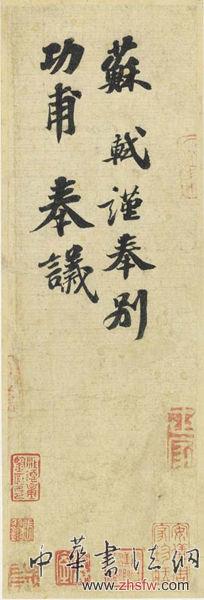 蘇軾謹奉別
功甫奉議
中華書法網
www.zhsfw.com